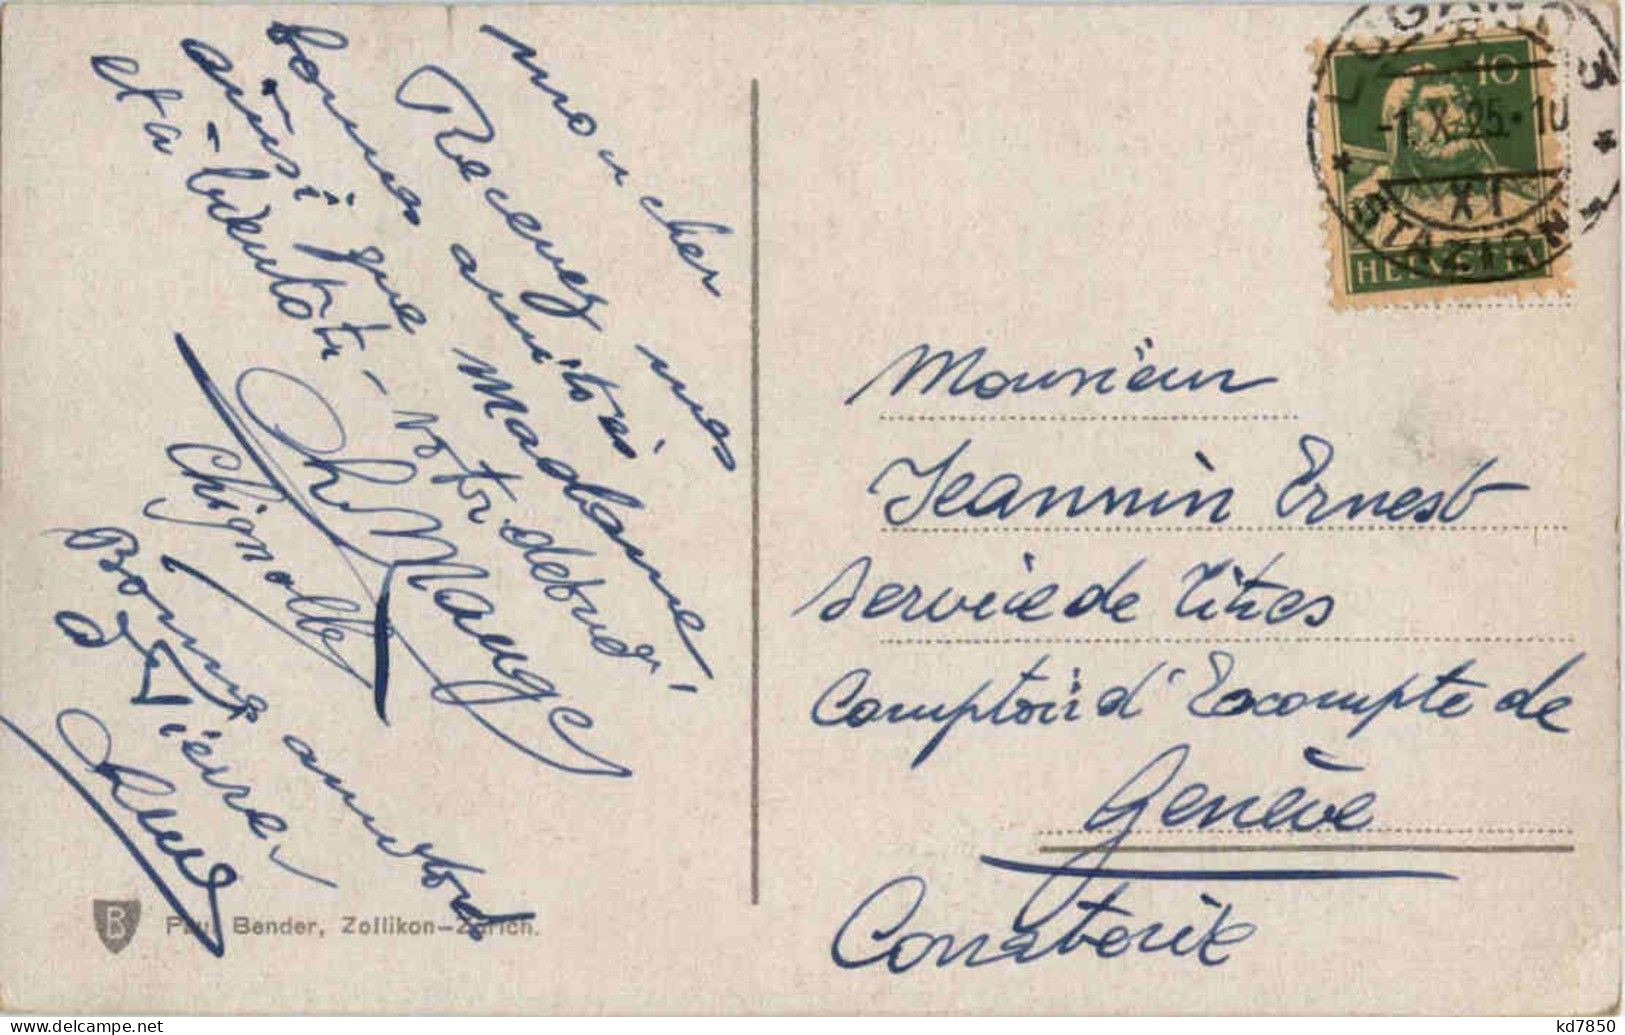 mon cher
Recevez nos
bonnes amitiés
ainsi que Madame
et à bientôt - votre dévoué
Ch. Mauge
Chignolle
Bonnes amitiés
à Pierre
LUGANO 3
-1.X.25.-10
XI
STAZIONE
10
HELVETIA
Monsieur
Jeannin Ernest
Service de Titres
Comptoir d'Escompte de
Genève
Corraterie
B
Paul Bender, Zollikon-Zürich.
kd7850